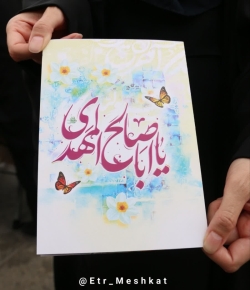 یا اباصالح المهدی
@Etr_Meshkat